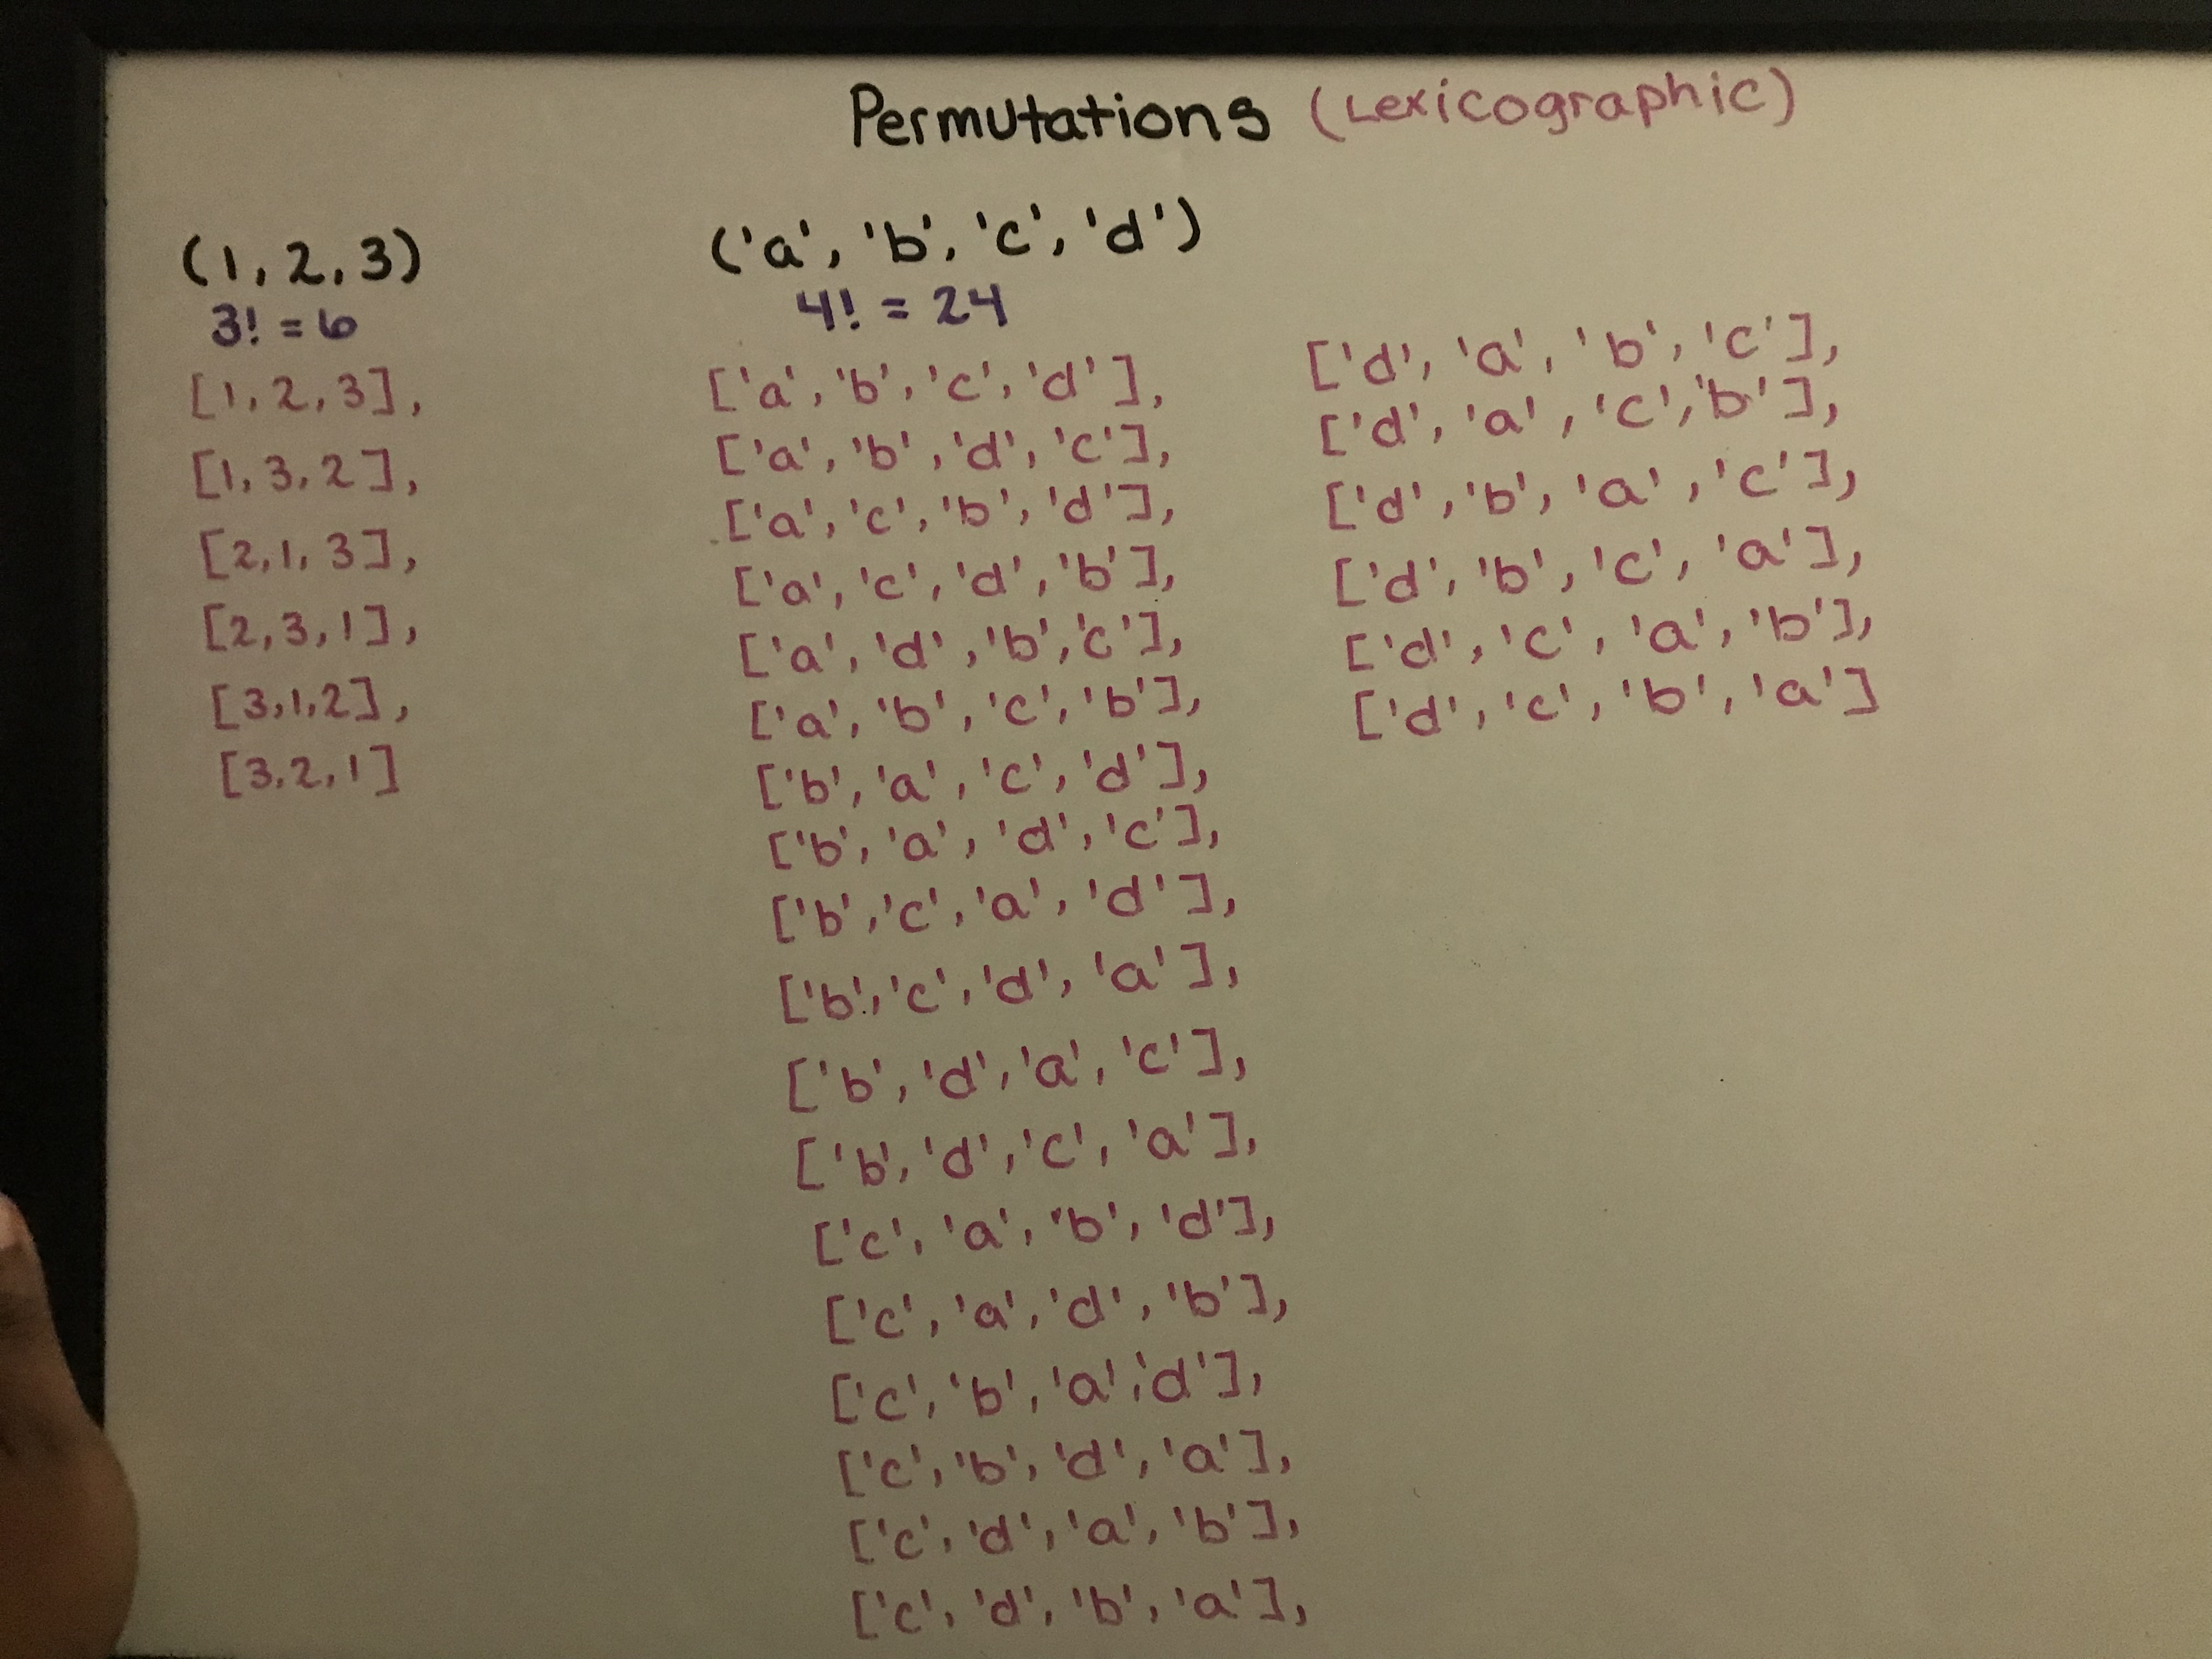 Permutations (Lexicographic)
(1, 2, 3)
3! = 6
[1, 2, 3],
[1, 3, 2],
[2, 1, 3],
[2, 3, 1],
[3, 1, 2],
[3, 2, 1]
('a', 'b', 'c', 'd')
4! = 24
['a', 'b', 'c', 'd'],
['a', 'b', 'd', 'c'],
['a', 'c', 'b', 'd'],
['a', 'c', 'd', 'b'],
['a', 'd', 'b', 'c'],
['a', 'b', 'c', 'b'],
['b', 'a', 'c', 'd'],
['b', 'a', 'd', 'c'],
['b', 'c', 'a', 'd'],
['b', 'c', 'd', 'a'],
['b', 'd', 'a', 'c'],
['b', 'd', 'c', 'a'],
['c', 'a', 'b', 'd'],
['c', 'a', 'd', 'b'],
['c', 'b', 'a', 'd'],
['c', 'b', 'd', 'a'],
['c', 'd', 'a', 'b'],
['c', 'd', 'b', 'a'],
['d', 'a', 'b', 'c'],
['d', 'a', 'c', 'b'],
['d', 'b', 'a', 'c'],
['d', 'b', 'c', 'a'],
['d', 'c', 'a', 'b'],
['d', 'c', 'b', 'a']